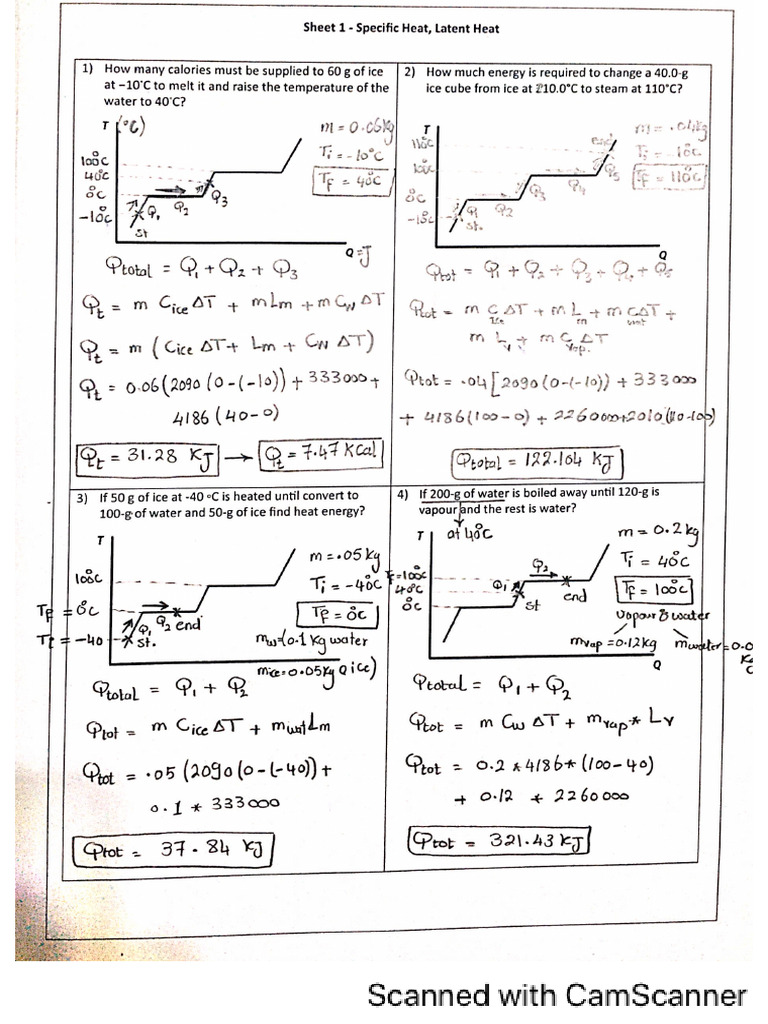 Sheet 1 - Specific Heat, Latent Heat
1) How many calories must be supplied to 60 g of ice
at −10°C to melt it and raise the temperature of the
water to 40°C?
T (°C)
m = 0.06kg
Ti = -10°C
Tf = 40°C
100°C
40°C
0°C
-10°C
Q1 Q2 Q3
st
Q = J
Qtotal = Q1 + Q2 + Q3
Qt = m Cice ΔT + mLm + m Cw ΔT
Qt = m ( Cice ΔT + Lm + Cw ΔT)
Qt = 0.06(2090 (0-(-10)) + 333000 +
4186 (40-0)
Qt = 31.28 KJ → Qt = 7.47 KCal
2) How much energy is required to change a 40.0-g
ice cube from ice at 210.0°C to steam at 110°C?
T
m = .04kg
Ti = -10°C
Tf = 110°C
110°C
100°C
0°C
-10°C
end
Q1 Q2 Q3 Q4 Q5
st.
Q
Qtot = Q1 + Q2 + Q3 + Q4 + Q5
Qtot = m C ice ΔT + m L m + m C wat ΔT +
m L v + m C vap. ΔT
Qtot = .04 [2090 (0-(-10)) + 333000
+ 4186(100-0) + 2260000+2010(110-100)
Qtotal = 122.164 KJ
3) If 50 g of ice at -40 °C is heated until convert to
100-g of water and 50-g of ice find heat energy?
T
m = .05 kg
Ti = -40°C
Tf = 0°C
100°C
Tf = 0°C
Ti = -40
Q1 Q2 end
st.
mw=(0.1 kg water
mice=0.05kg ice)
Q
Qtotal = Q1 + Q2
Qtot = m Cice ΔT + mwat Lm
Qtot = .05 (2090 (0-(-40)) +
0.1 * 333000
Qtot = 37.84 KJ
4) If 200-g of water is boiled away until 120-g is
vapour and the rest is water?
at 40°C
T
m = 0.2 kg
Ti = 40°C
Tf = 100°C
Tf=100°C
40°C
0°C
Q1 Q2
st
end
vapour & water
mvap = 0.12kg
mwater = 0.0
Q
Qtotal = Q1 + Q2
Qtot = m Cw ΔT + mvap * Lv
Qtot = 0.2 * 4186 * (100-40)
+ 0.12 * 2260000
Qtot = 321.43 KJ
Scanned with CamScanner